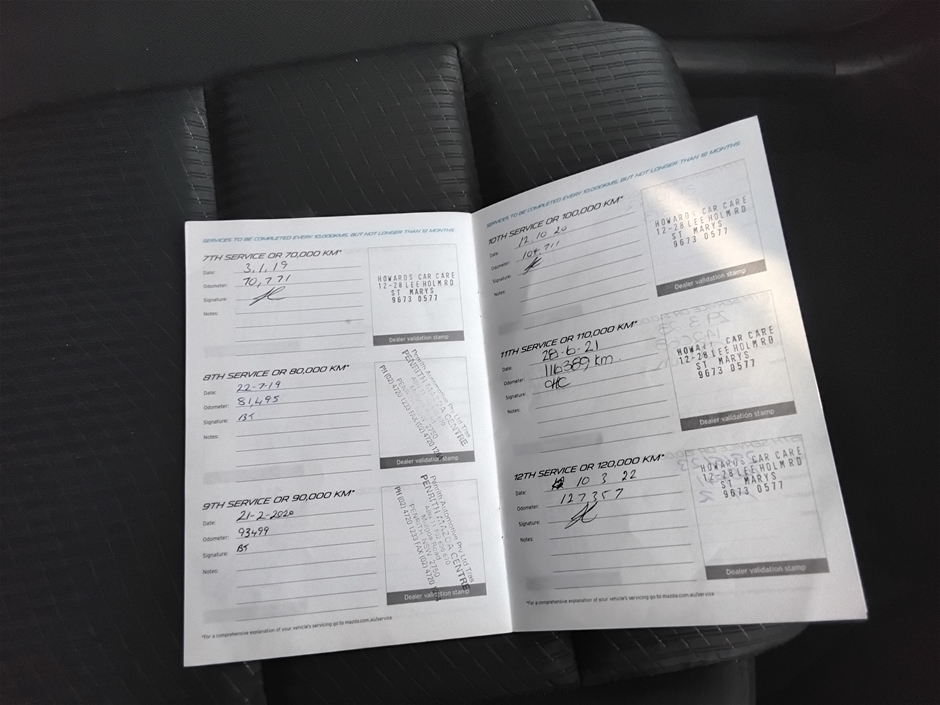 SERVICES TO BE COMPLETED EVERY 10,000KMS, BUT NOT LONGER THAN 12 MONTHS
7TH SERVICE OR 70,000 KM*
Date: 3.1.19
Odometer: 70,771
Signature:
Notes:
HOWARDS CAR CARE
12-28 LEE HOLM RD
ST MARYS
9673 0577
Dealer validation stamp
8TH SERVICE OR 80,000 KM*
Date: 22-7-19
Odometer: 81,495
Signature: BJ
Notes:
Penrith Automotive Pty Ltd
PENRITH MAZDA CENTRE
PENRITH NSW 2750
PH (02) 4720 1233 FAX (02) 4720
Dealer validation stamp
9TH SERVICE OR 90,000 KM*
Date: 21-2-2020
Odometer: 93499
Signature: BJ
Notes:
Penrith Automotive Pty Ltd
PENRITH MAZDA CENTRE
PENRITH NSW 2750
PH (02) 4720 1233 FAX (02) 4720
Dealer validation stamp
*For a comprehensive explanation of your vehicle's servicing go to mazda.com.au/service
SERVICES TO BE COMPLETED EVERY 10,000KMS, BUT NOT LONGER THAN 12 MONTHS
10TH SERVICE OR 100,000 KM*
Date: 12.10.20
Odometer: 104,711
Signature:
Notes:
HOWARDS CAR CARE
12-28 LEE HOLM RD
ST MARYS
9673 0577
Dealer validation stamp
11TH SERVICE OR 110,000 KM*
Date: 28.6.21
Odometer: 116389 km.
Signature:
Notes:
HOWARDS CAR CARE
12-28 LEE HOLM RD
ST MARYS
9673 0577
Dealer validation stamp
12TH SERVICE OR 120,000 KM*
Date: 10 3 22
Odometer: 127357
Signature:
Notes:
HOWARDS CAR CARE
12-28 LEE HOLM RD
ST MARYS
9673 0577
Dealer validation stamp
*For a comprehensive explanation of your vehicle's servicing go to mazda.com.au/service